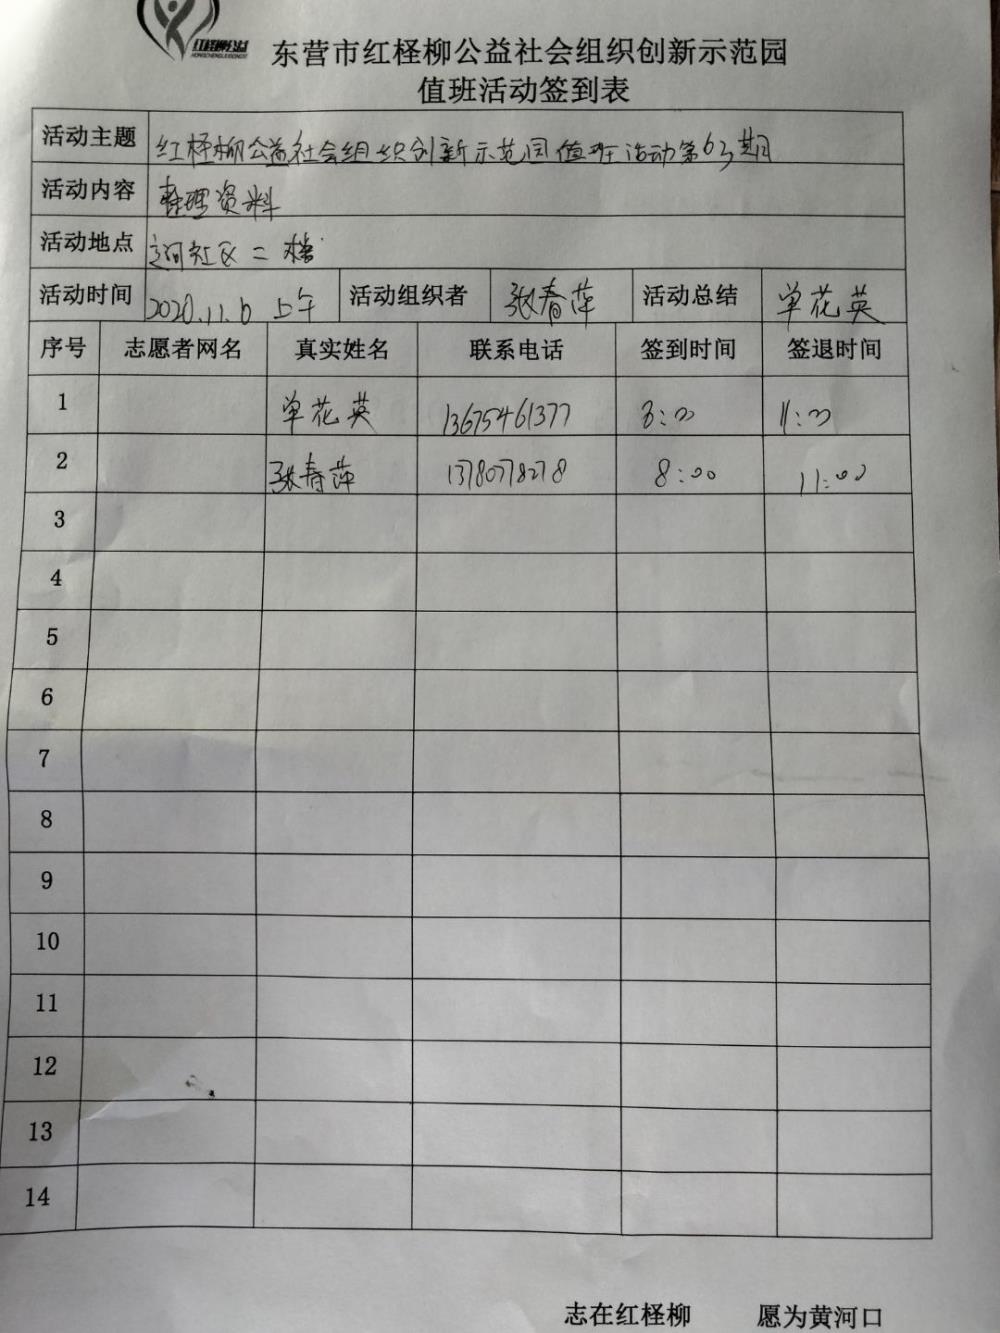 红柽柳公益
东营市红柽柳公益社会组织创新示范园
值班活动签到表
活动主题 红柽柳公益社会组织创新示范园值班活动第63期
活动内容 整理资料
活动地点 社区二楼
活动时间 2020.11.6 上午 活动组织者 张春萍 活动总结 单花英
序号 志愿者网名 真实姓名 联系电话 签到时间 签退时间
1 单花英 13675461377 8:00 11:00
2 张春萍 13780778278 8:00 11:00
3
4
5
6
7
8
9
10
11
12
13
14
志在红柽柳 愿为黄河口